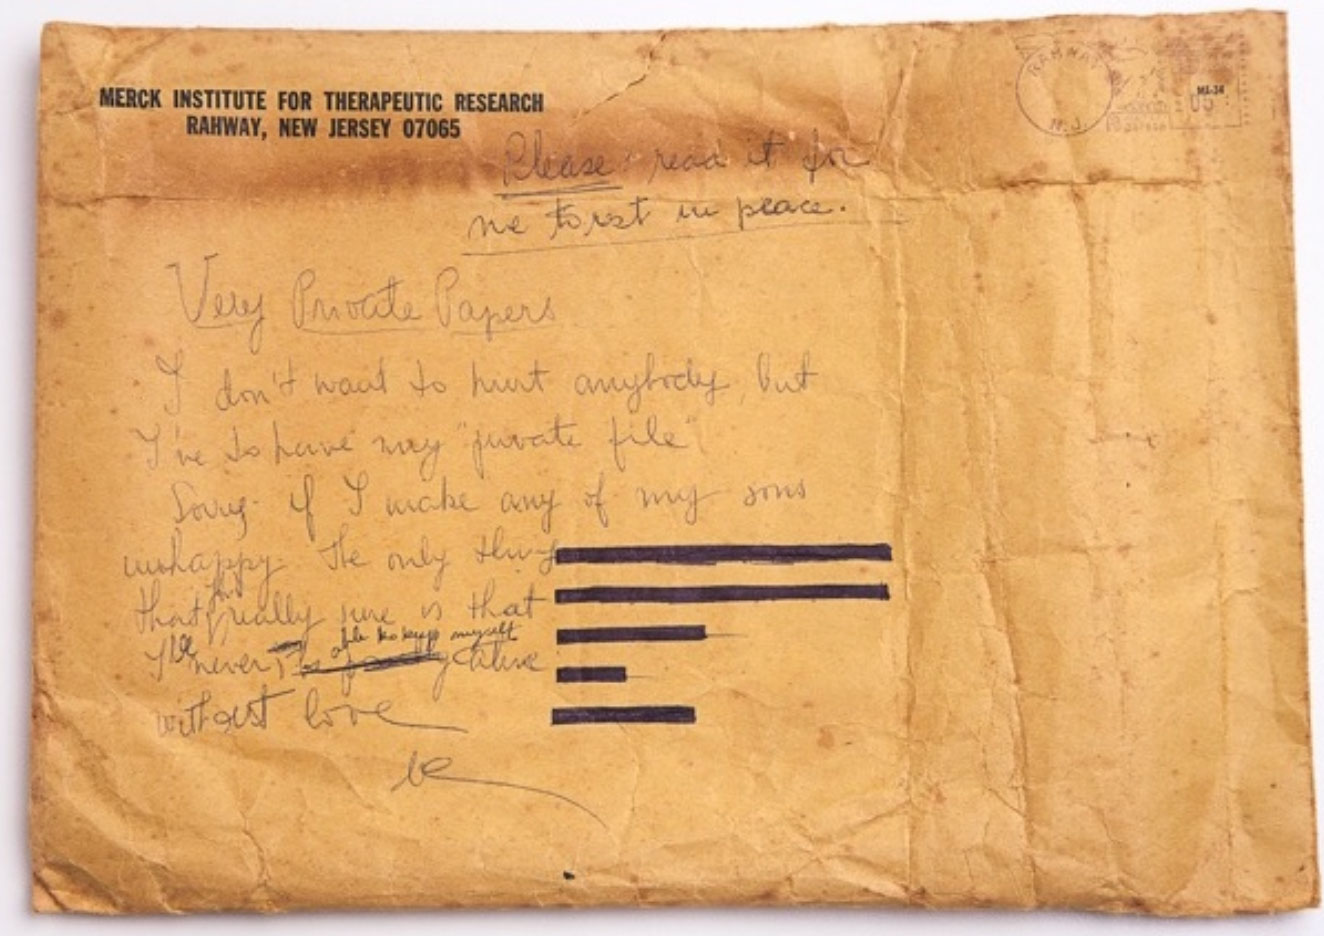 MERCK INSTITUTE FOR THERAPEUTIC RESEARCH
RAHWAY, NEW JERSEY 07065
RAHWAY
N.J.
Please read it for
me to rest in peace.
Very Private Papers
I don't want to hurt anybody, but
I've to have my "private file"
Sorry if I make any of my sons
unhappy. The only thing
that I'm really sure is that
I'll never able to keep myself
alive
without love